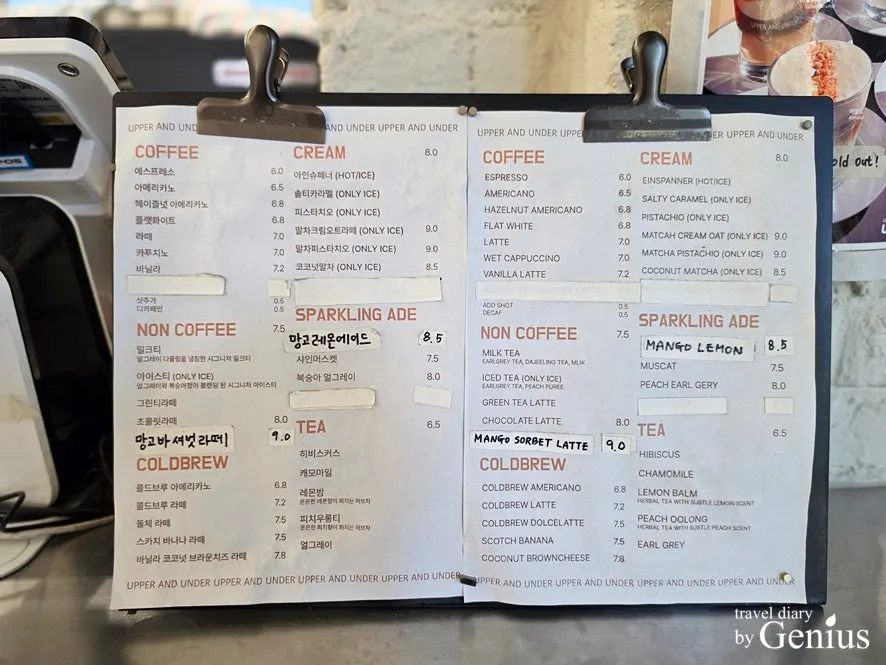 UPPER AND UND
UPPER AND UNDER UPPER AND UNDER
COFFEE
에스프레소 6.0
아메리카노 6.5
헤이즐넛 아메리카노 6.8
플랫화이트 6.8
라떼 7.0
카푸치노 7.0
바닐라 7.2
샷추가 0.5
디카페인 0.5
NON COFFEE 7.5
밀크티
얼그레이 다즐링을 냉침한 시그니처 밀크티
아이스티 (ONLY ICE)
얼그레이와 복숭아청이 블렌딩 된 시그니처 아이스티
그린티라떼
초콜릿라떼 8.0
망고바 셔벗 라떼 9.0
COLDBREW
콜드브루 아메리카노 6.8
콜드브루 라떼 7.2
돌체 라떼 7.5
스카치 바나나 라떼 7.5
바닐라 코코넛 브라운치즈 라떼 7.8
CREAM 8.0
아인슈페너 (HOT/ICE)
솔티카라멜 (ONLY ICE)
피스타치오 (ONLY ICE)
말차크림오트라떼 (ONLY ICE) 9.0
말차피스타치오 (ONLY ICE) 9.0
코코넛말차 (ONLY ICE) 8.5
SPARKLING ADE
망고레몬에이드 8.5
샤인머스켓 7.5
복숭아 얼그레이 8.0
TEA 6.5
히비스커스
캐모마일
레몬밤
은은한 레몬향이 퍼지는 허브차
피치우롱티
은은한 피치향이 퍼지는 허브차
얼그레이
UPPER AND UNDER UPPER AND UNDER UPPER AND UNDER UPPER AND UNDER
UPPER AND UNDER UPP
UNDER UPPER AND UNDER
COFFEE
ESPRESSO 6.0
AMERICANO 6.5
HAZELNUT AMERICANO 6.8
FLAT WHITE 6.8
LATTE 7.0
WET CAPPUCCINO 7.0
VANILLA LATTE 7.2
ADD SHOT 0.5
DECAF 0.5
NON COFFEE 7.5
MILK TEA
EARLGREY TEA, DAJEELING TEA, MLIK
ICED TEA (ONLY ICE)
EARLGREY TEA, PEACH PUREE
GREEN TEA LATTE
CHOCOLATE LATTE 8.0
MANGO SORBET LATTE 9.0
COLDBREW
COLDBREW AMERICANO 6.8
COLDBREW LATTE 7.2
COLDBREW DOLCELATTE 7.5
SCOTCH BANANA 7.5
COCONUT BROWNCHEESE 7.8
CREAM 8.0
EINSPANNER (HOT/ICE)
SALTY CARAMEL (ONLY ICE)
PISTACHIO (ONLY ICE)
MATCAH CREAM OAT (ONLY ICE) 9.0
MATCHA PISTACHIO (ONLY ICE) 9.0
COCONUT MATCHA (ONLY ICE) 8.5
SPARKLING ADE
MANGO LEMON 8.5
MUSCAT 7.5
PEACH EARL GERY 8.0
TEA 6.5
HIBISCUS
CHAMOMILE
LEMON BALM
HERBAL TEA WITH SUBTLE LEMON SCENT
PEACH OOLONG
HERBAL TEA WITH SUBTLE PEACH SCENT
EARL GREY
UPPER AND UNDER UPPER AND UNDER UPPER AND UNDER UPPER AND UNDER
old out!
travel diary
by Genius